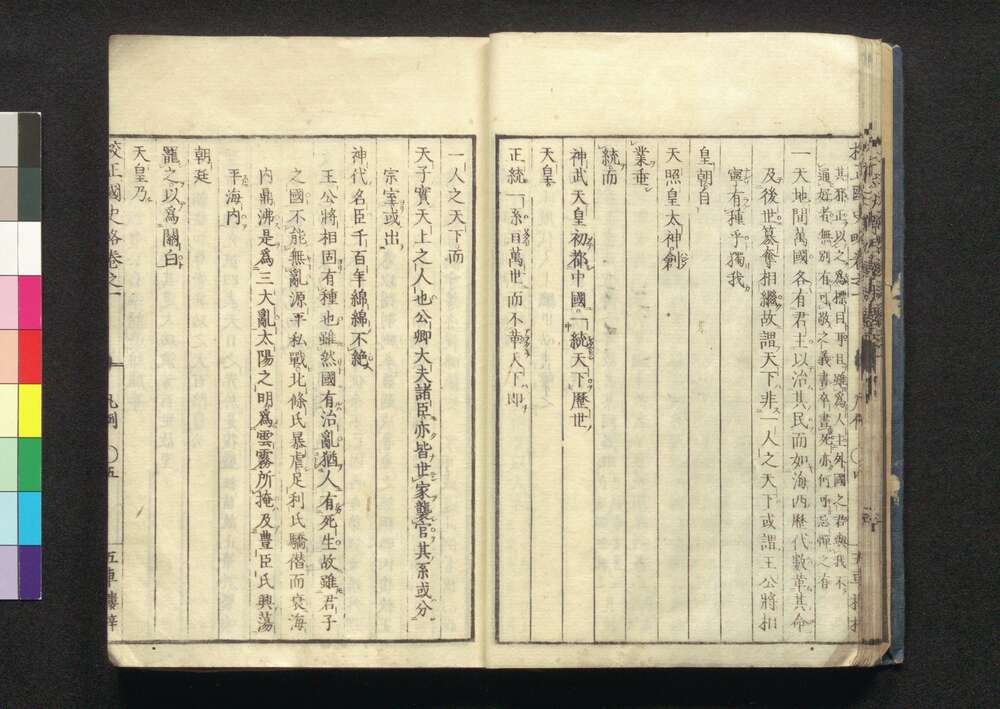 其邪正以之為標目耶且雖為人主外國之君與我不
通好者無別有可敬之義書卒書死亦何所忌憚之有
一天地間萬國各有君主以治其民而如海西歷代數革其命
及後世簒奪相繼故謂天下非一人之天下或謂王公將相
寧有種乎獨我
皇朝自
天照皇太神創
業垂
統而
神武天皇初都中國一統天下歷世
天皇
正統一系亘萬世而不革天下即
一人之天下而
天子實天上之人也公卿大夫諸臣亦皆世家襲官其系或分
宗室或出
神代名臣千百年綿綿不絕
王公將相固有種也雖然國有治亂猶人有死生故雖君子
之國不能無亂源平私戰北條氏暴虐足利氏驕僭而衰海
內鼎沸是為三大亂太陽之明為雲霧所掩及豐臣氏興蕩
平海內
朝廷
寵之以為關白
天皇乃
校正國史略卷之一 凡例 〇五 五車樓梓